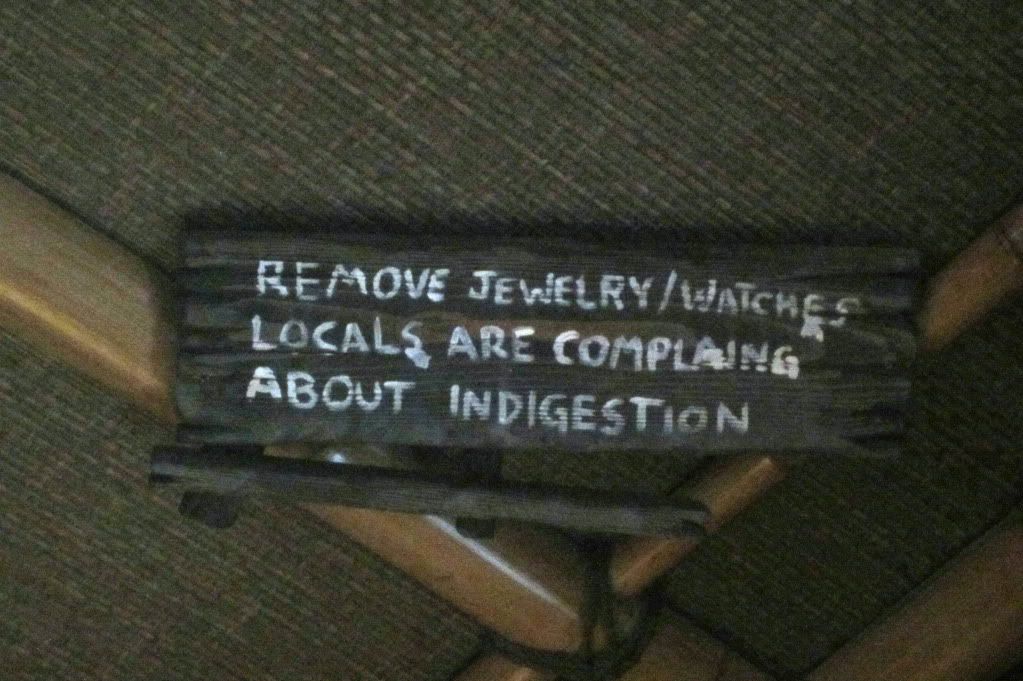 REMOVE JEWELRY/WATCHES
LOCALS ARE COMPLAING
ABOUT INDIGESTION